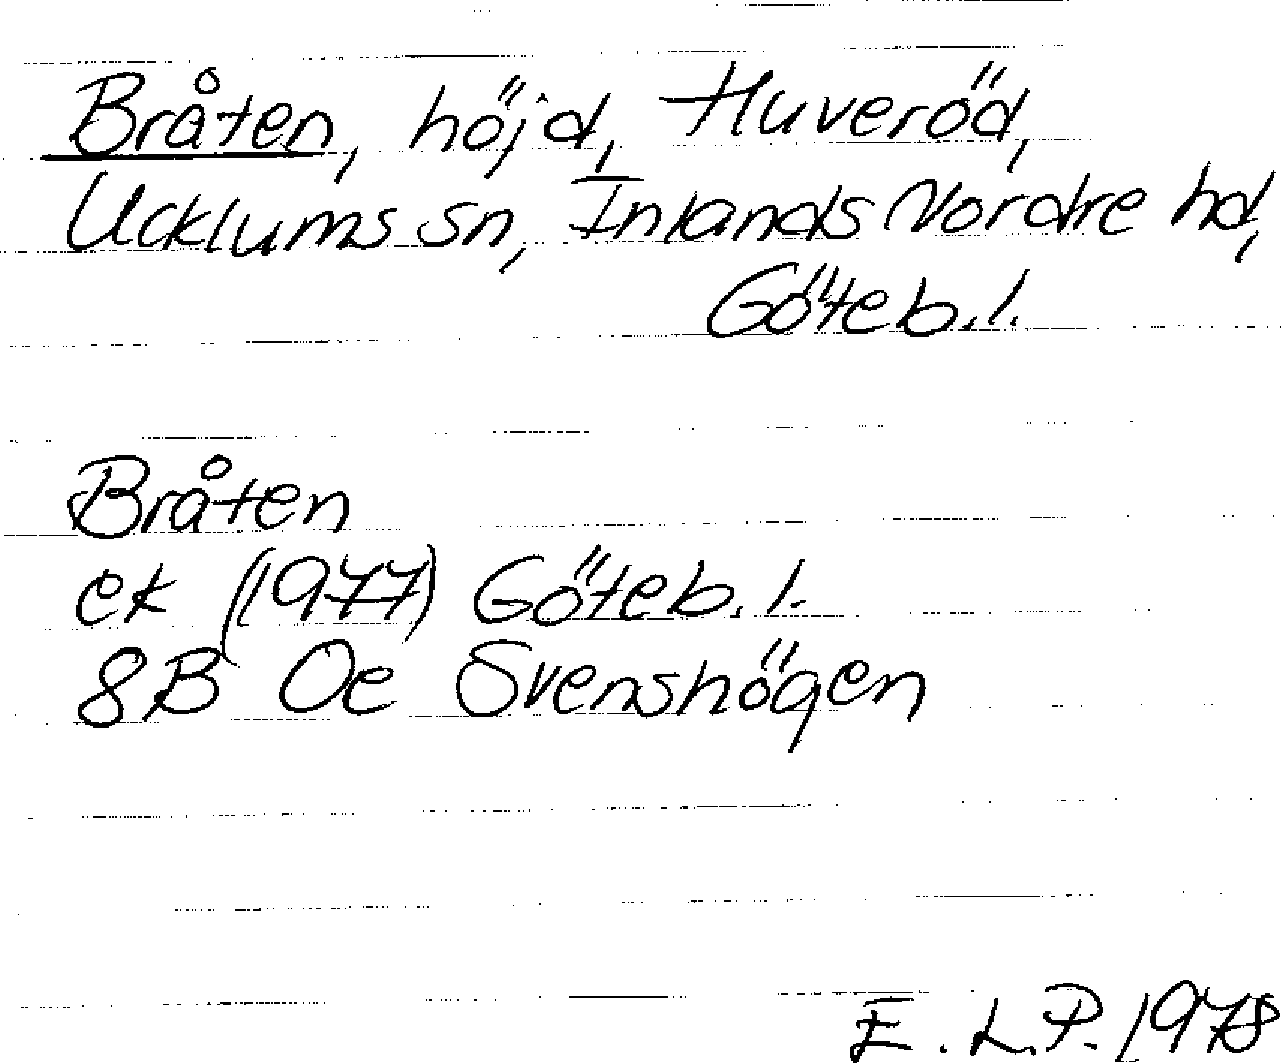 Bråten, höjd, Huveröd,
Ucklums sn, Inlands Nordre hd,
Göteb. l.
Bråten
ek (1977) Göteb. l.
8B Oe Svenshögen
E. L.P. 1978